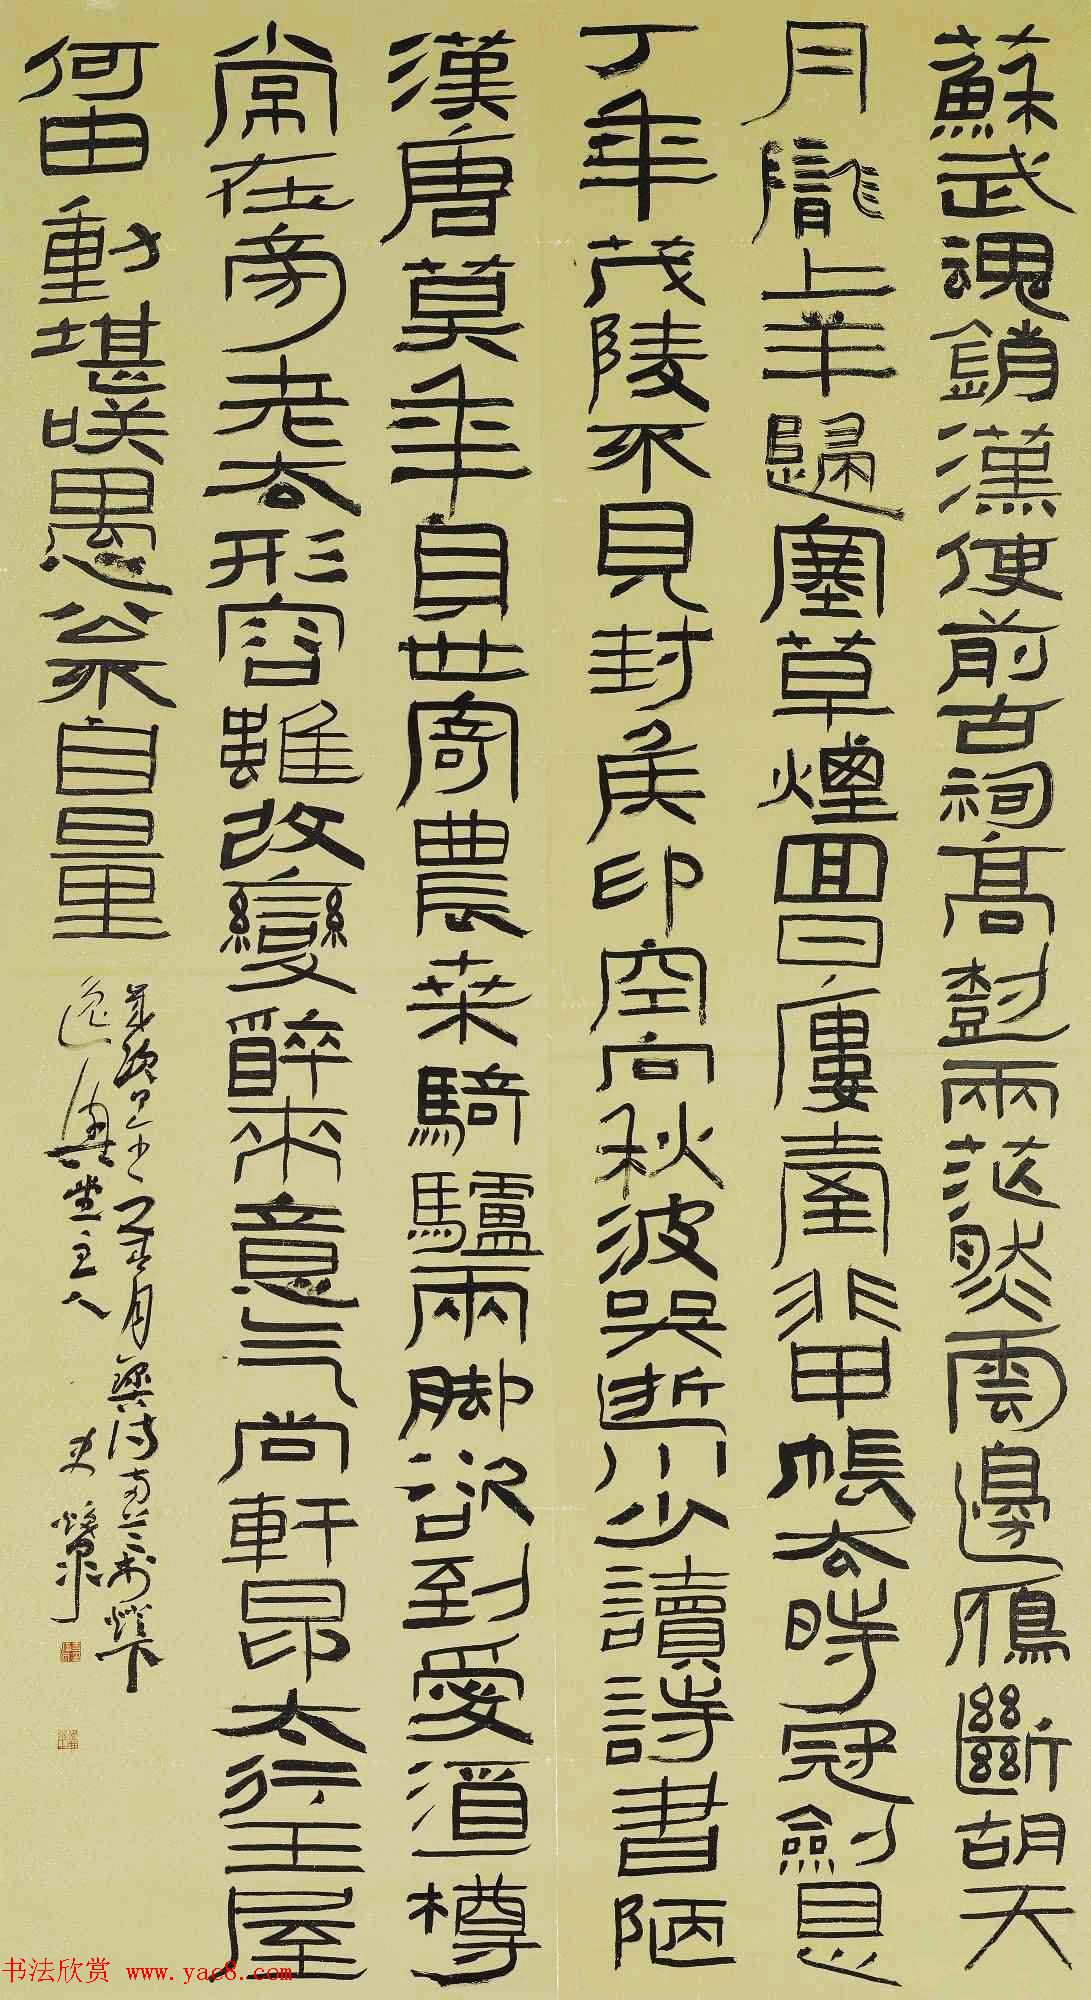 蘇武魂銷漢使前古祠高樹兩茫然雲邊雁斷胡天
月隴上羊歸塞草煙回日樓臺非甲帳去時冠劍是
丁年茂陵不見封侯印空向秋波哭逝川少讀詩書陋
漢唐莫年身世寄農桑騎驢兩脚欲到愛酒一樽
常在旁老去形容雖改變醉來意气尚軒昂太行王屋
何由動堪咲愚公不自量
歲次 月
逸興堂主人
书法欣赏 www.yac8.com